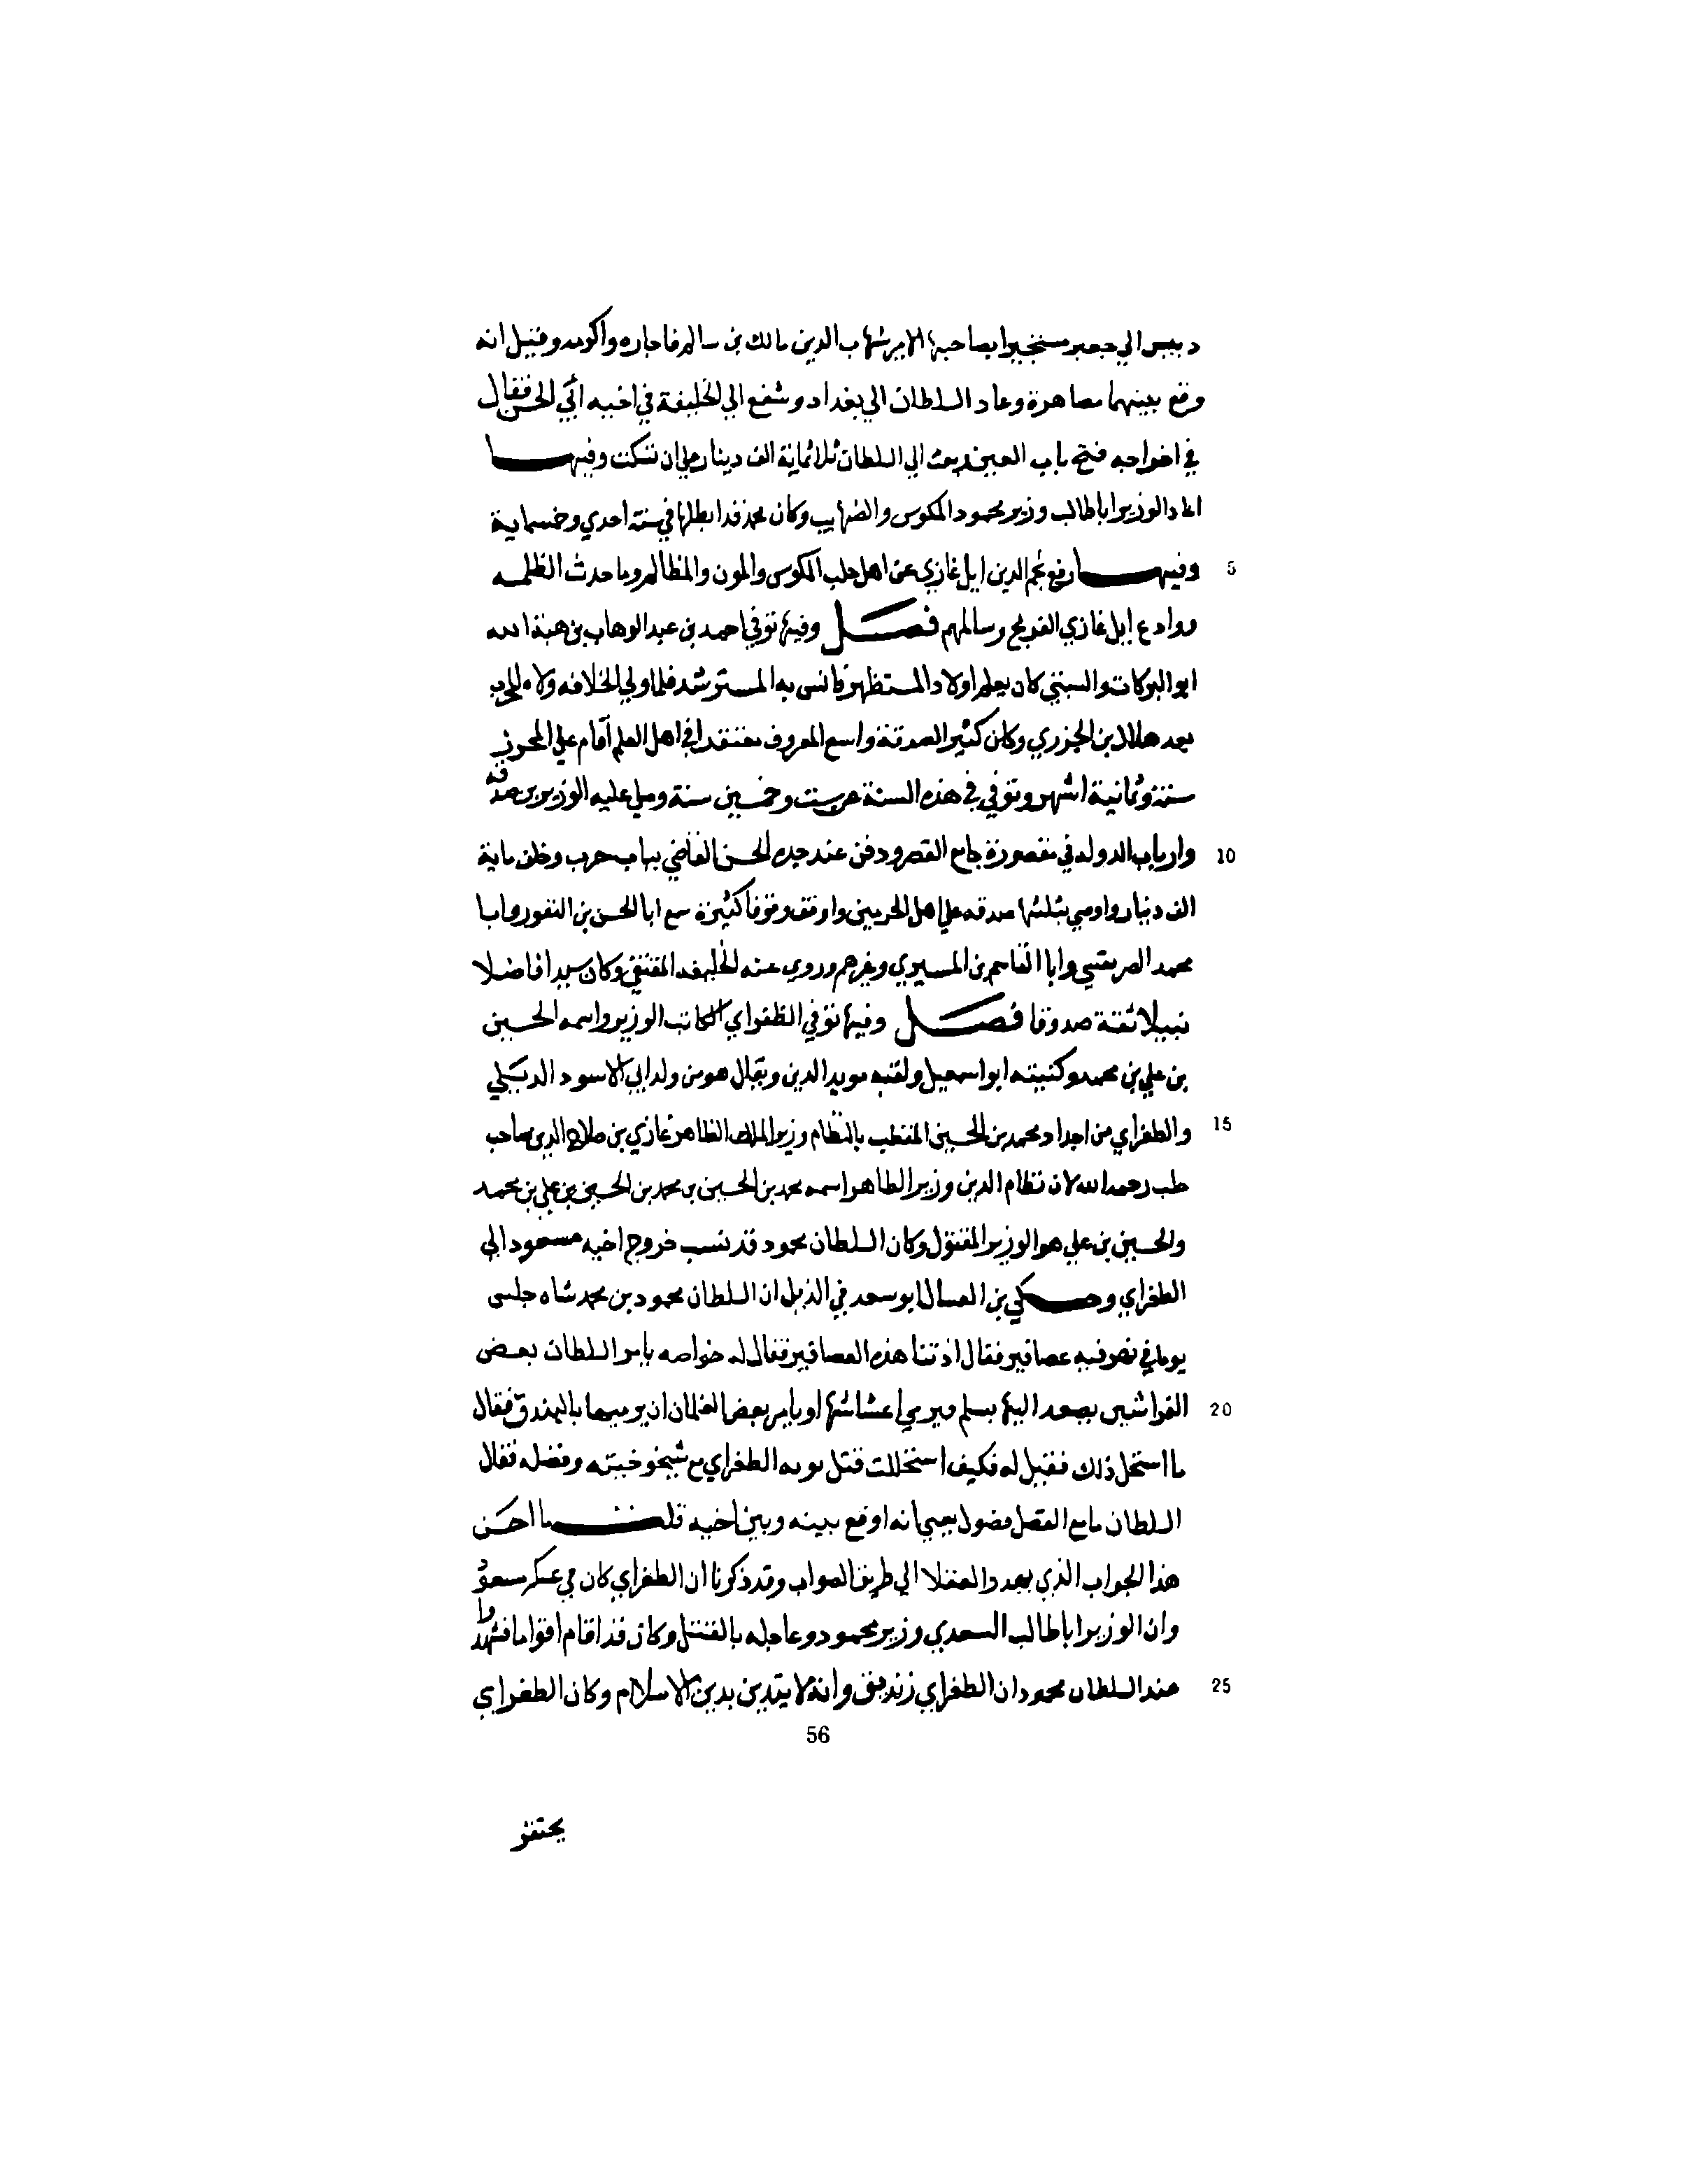 دبيس الي جعبر مستجيرا بصاحبها الامير شهاب الدين مالك بن سالم فاجاره واكرمه وقيل انه
وقع بينهما مصاهرة وعاد السلطان الي بغداد وشفع الي الخليفة في اخيه ابي الحسن فقال
في اخراجه فتح باب العين وبعث الي السلطان ثلاثماية الف دينار علي ان نسكت وفيها
اعاد الوزير ابا طالب وزير محمود المكوس والضرايب وكان محمد قد ابطلها في سنة احدي وخمسماية
5 وفيها رفع نجم الدين ايل غازي عن اهل حلب المكوس والمون والمظالم وما حدث الظلمه
ووادع إيل غازي الفرنج وسالمهم فصل وفيها توفي احمد بن عبد الوهاب بن هبة الله
ابو البركات والسبتي كان يعلم اولاد المستظهر فانس به المسترشد فلما ولي الخلافه ولاه
بعد هلال بن الجزري وكان كثير الصدقة واسع المعروف متفقدا في اهل العلم أقام علي المخزن
سنة وثمانية اشهر وتوفي في هذه السنة عن ست وخمسين سنة وصلي عليه الوزير بن صدقه
10 وارباب الدوله في مقصورة جامع القصر ودفن عند جده الحسن القاضي بباب حرب وخلف ماية
الف دينار واوصي بثلثها صدقه علي اهل الحرمين واوقف وقوفا كثيرة سمع ابا الحسن بن النقور وابا
محمد الصريفيني وابا القاسم بن وغيرهم وروي عنه الخليفه المقتفي وكان سيدا فاضلا
نبيلا ثقة صدوقا فصل وفيها توفي الطغراي الكاتب الوزير واسمه الحسين
بن علي بن محمد وكنيته ابو اسمعيل ولقبه مويد الدين ويقال هو من ولد ابي الاسود الدئلي
15 والطغراي من اجداد محمد بن الحسين المنقطب بالنظام وزير الملك الظاهر غازي بن صلاح الدين صاحب
حلب رحمه الله لان نظام الدين وزير الظاهر اسمه محمد بن الحسين بن محمد بن الحسين بن علي بن محمد
والحسين بن علي هو الوزير المقتول وكان السلطان محمود قد نسب خروج اخيه مسعود الي
الطغراي وحكي بن ابو سعد في الذيل ان السلطان محمود بن محمد شاه جلس
يوما في قصر فيه عصافير فقال اذتنا هذه العصافير فقال له خواصه يامر السلطان بعض
20 الفراشين يصعد اليها بسلم ويرمي اعشاشها او يامر بعض الغلمان ان يرميها بالبندق فقال
ما استحل ذلك فقيل له فكيف استحللت قتل مويد الطغراي مع وفضله فقال
السلطان مامع الفضل فضول يعني انه اوقع بينه وبين اخيه قلت ما احسن
هذا الجواب الذي يهد والعقلا الي طريق الصواب وقد ذكرنا ان الطغراي كان في عسكر مسعود
وان الوزير ابا طالب السعدي وزير محمود وعاجله بالقتل وكان قد اقام اقواما فشهدوا
25 عند السلطان محمود ان الطغراي زنديق وانه لا يتدين بدين الاسلام وكان الطغراي
56
يحتقر